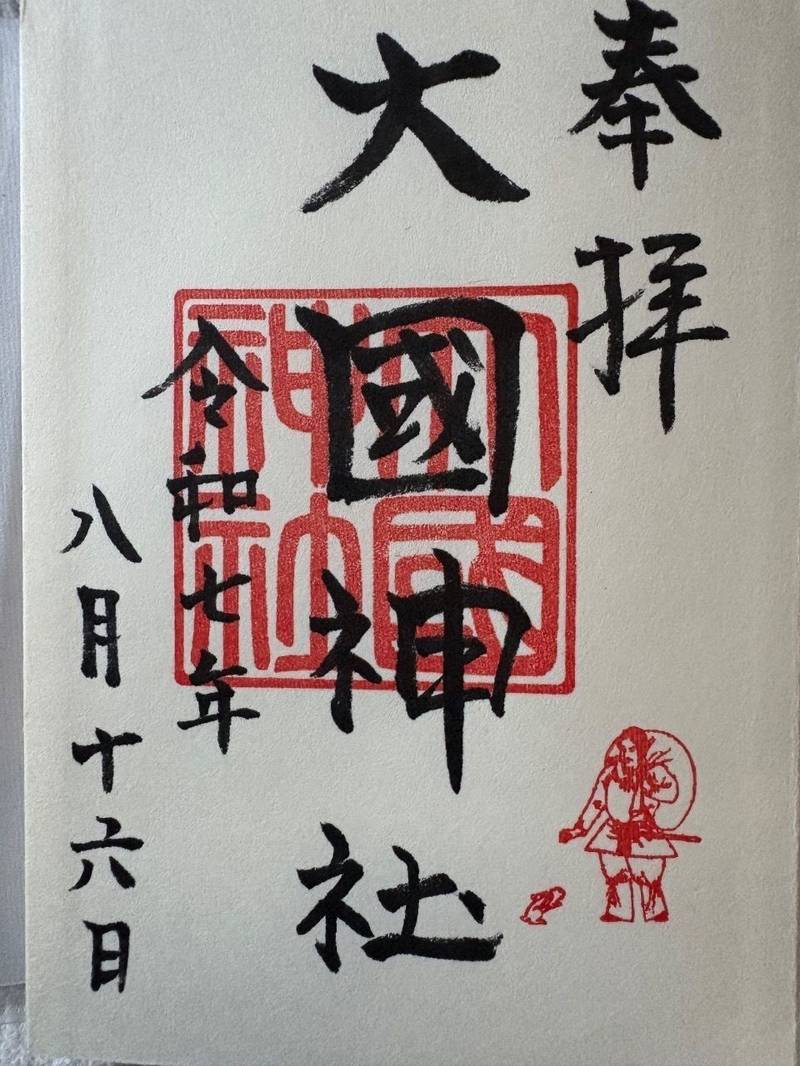 奉拝
大國神社
大國神社
令和七年
八月十六日